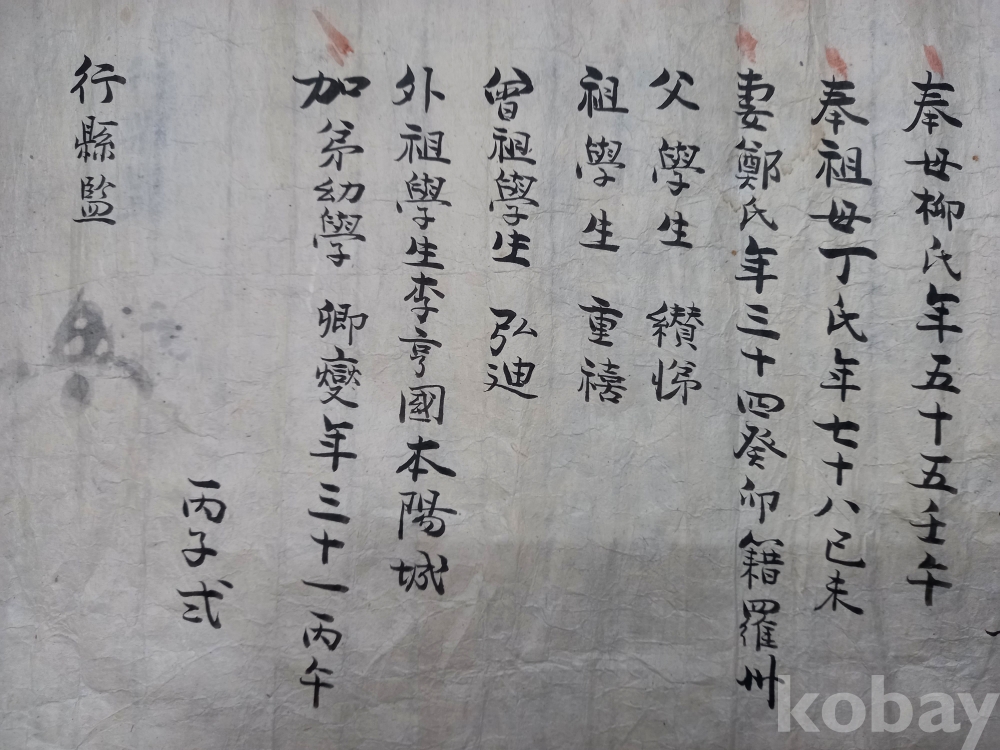 奉母柳氏年五十五壬午
奉祖母丁氏年七十八己未
妻鄭氏年三十四癸卯籍羅州
父學生 纘悌
祖學生 重禧
曾祖學生 弘迪
外祖學生李亨國本陽城
加弟幼學 卿燮年三十一丙午
丙子式
行縣監
kobay